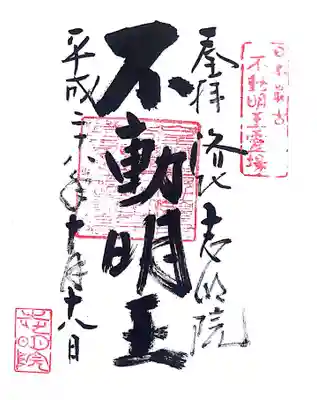 日本最古
不動明王靈場
奉拝 洛北 志明院
不動明王
平成二十八年十月十八日
志明院